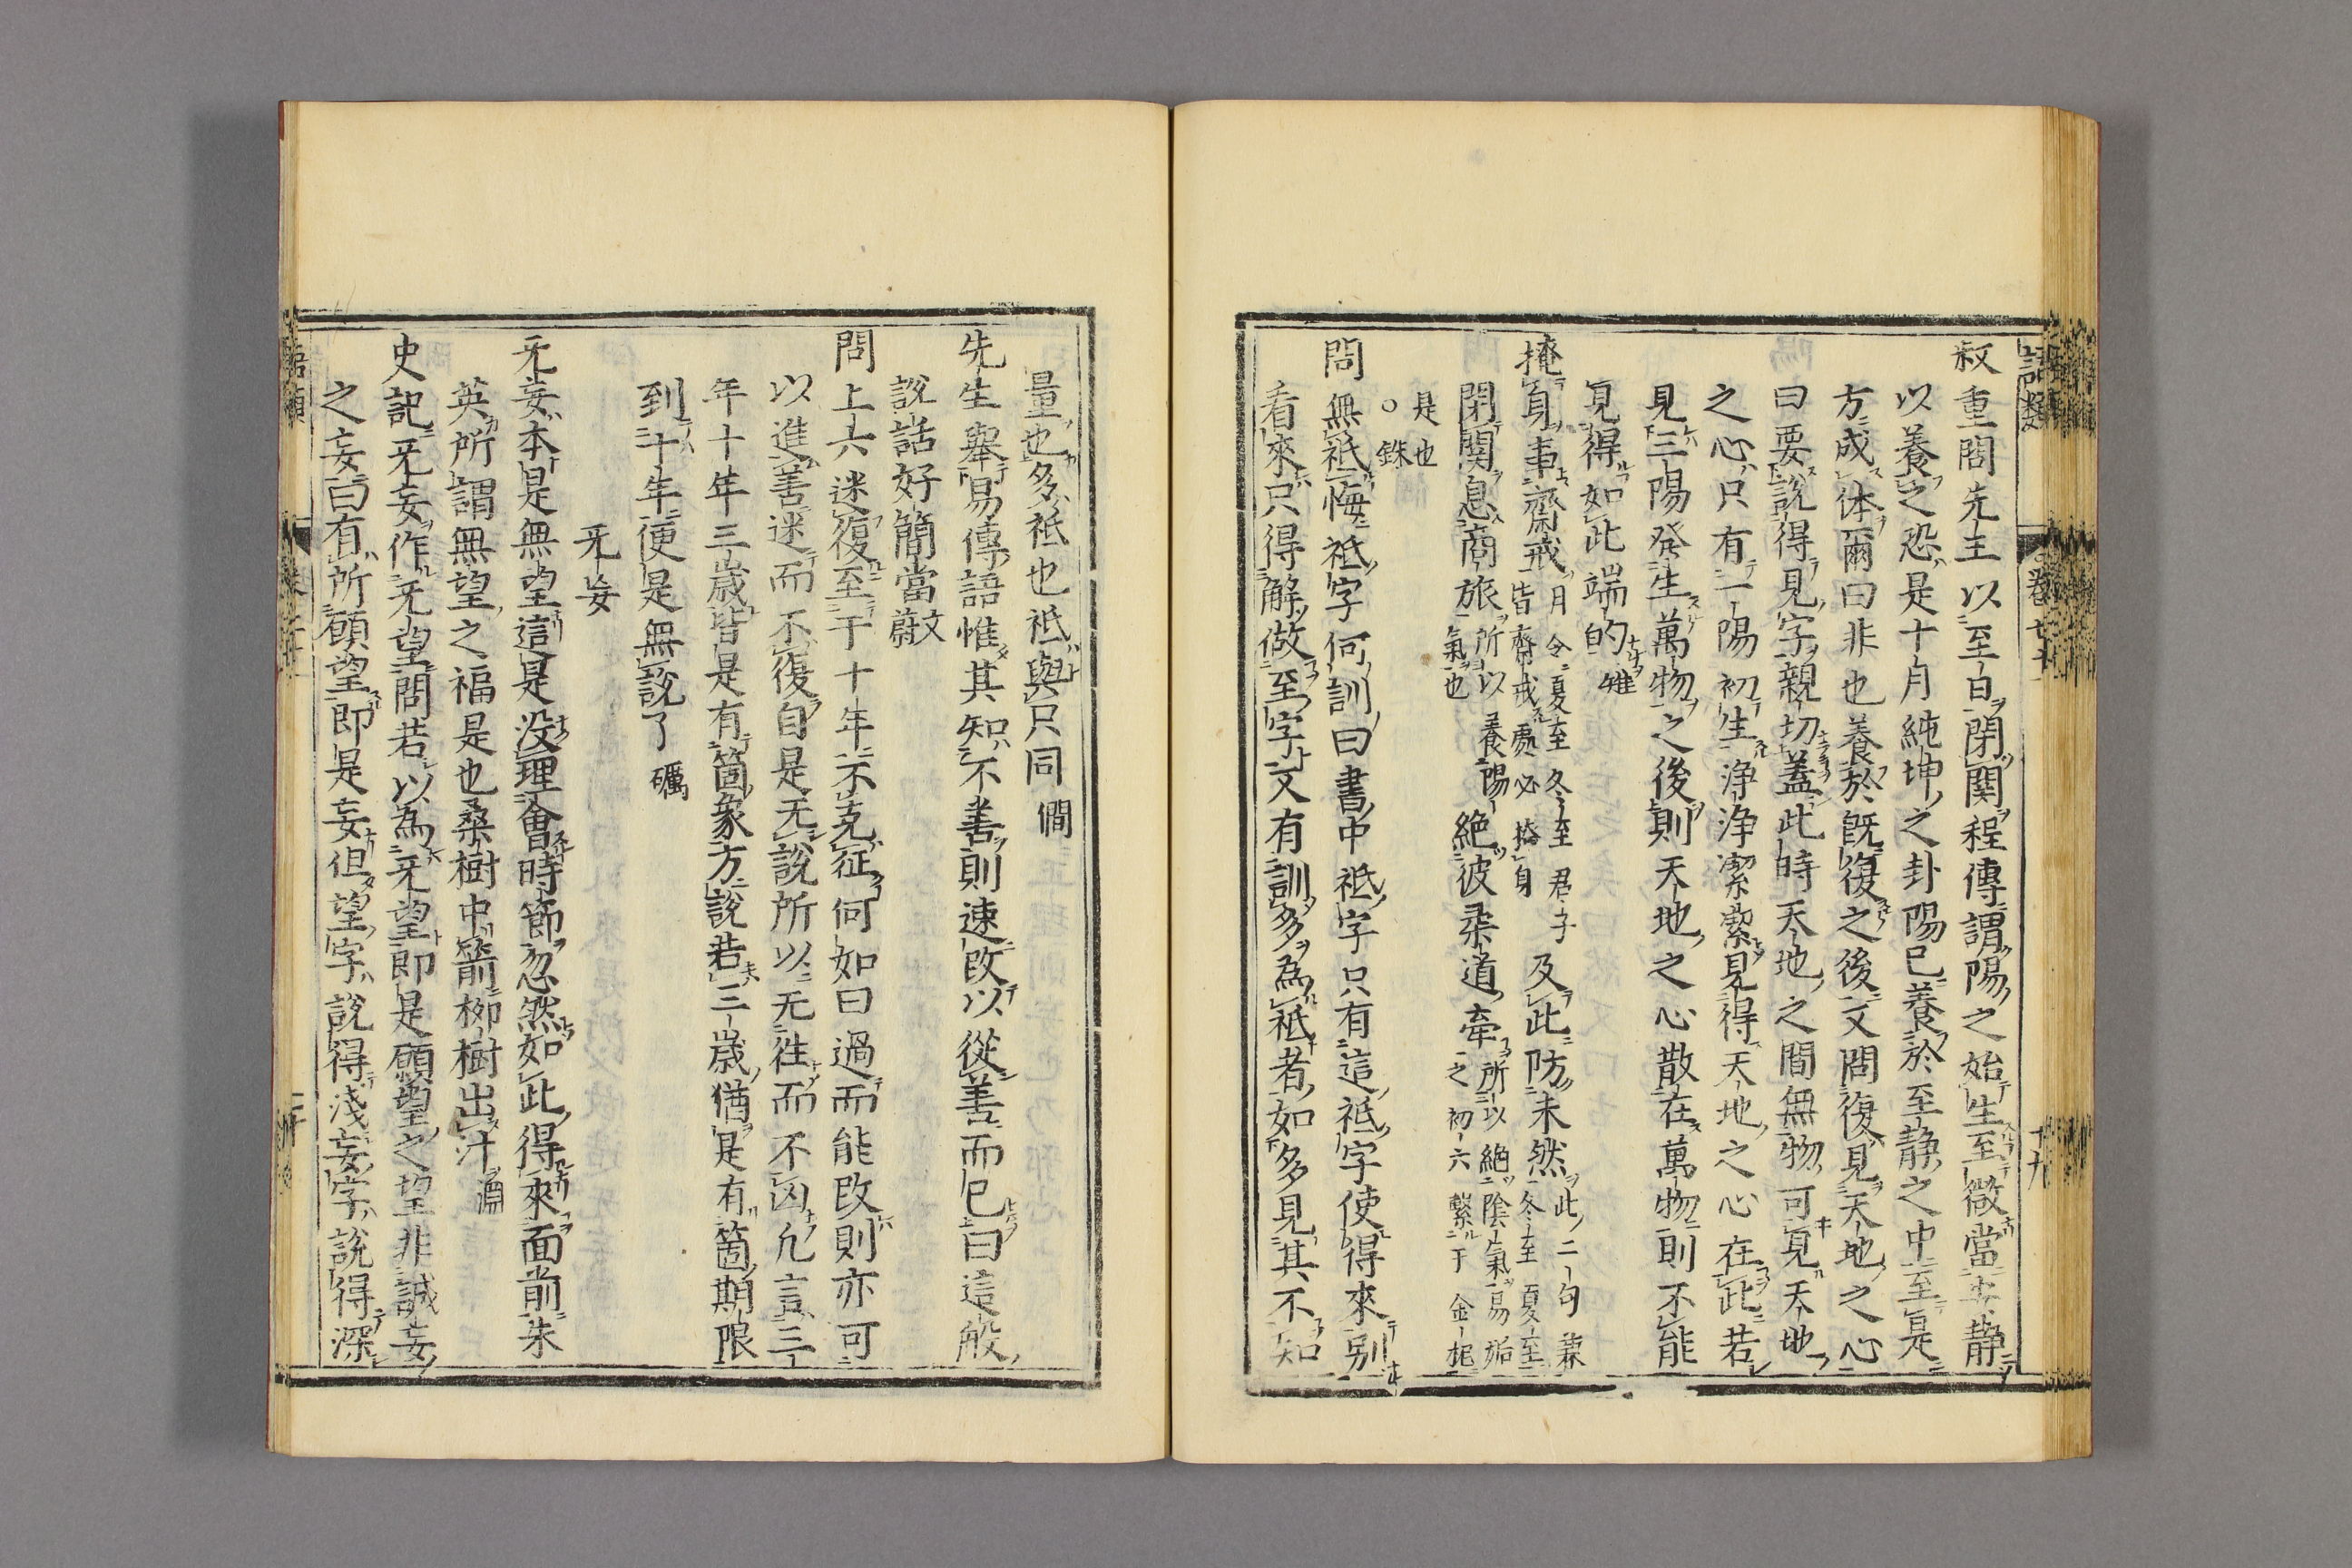 語類
卷七十一
十九
叔重問先王以至日閉關程傳謂陽之始生至微當安静
以養之恐是十月純坤之卦陽已養於至静之中至是
方成体爾曰非也養於既復之後又問復見天地之心
曰要說得見字親切蓋此時天地之間無物可見天地
之心只有一陽初生浄浄潔潔見得天地之心在此若
見三陽発生萬物之後則天地之心散在萬物則不能
見得如此端的 雉
掩身事齋戒 月令夏至冬至君子
皆齋戒處必掩身 及此防未然 此二句兼
冬至夏至
閉關息商旅 所以養陽
氣也 絶彼柔道牽 所以絶陰氣易姤
之初六繫于金柅
是也
○銖
問無祗悔祗字何訓曰書中祗字只有這祗字使得來別
看來只得解做至字又有訓多為祗者如多見其不知
量也多祗也祗與只同 僩
先生舉易傳語惟其知不善則速改以從善而已曰這般
說話好簡當 文蔚
問上六迷復至于十年不克征何如曰過而能改則亦可
以進善迷而不復自是无說所以无徃而不凶凢言三
年十年三歳皆是有箇象方說若三歳猶是有箇期限
到十年便是無說了 礪
无妄
无妄本是無望這是没理會時節忽然如此得來面前朱
英所謂無望之福是也桑樹中箭栁樹出汁 淵
史記无妄作无望問若以為无望即是願望之望非誠妄
之妄曰有所願望即是妄但望字說得浅妄字說得深
語類